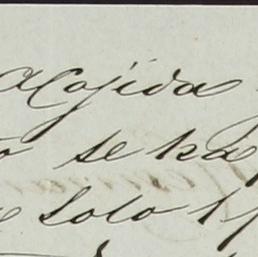 acojida
o se ha
e solo